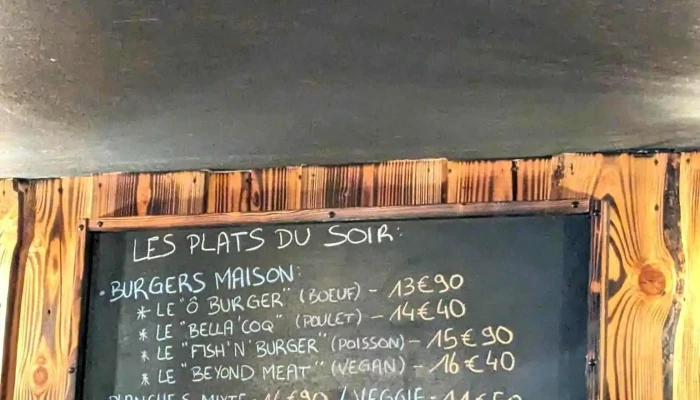 LES PLATS DU SOIR:
• BURGERS MAISON:
* LE "Ô BURGER" (BOEUF) - 13€90
* LE "BELLA'COQ" (POULET) - 14€40
* LE "FISH'N'BURGER" (POISSON) - 15€90
* LE "BEYOND MEAT" (VEGAN) - 16€40
MIXTE / VEGGIE